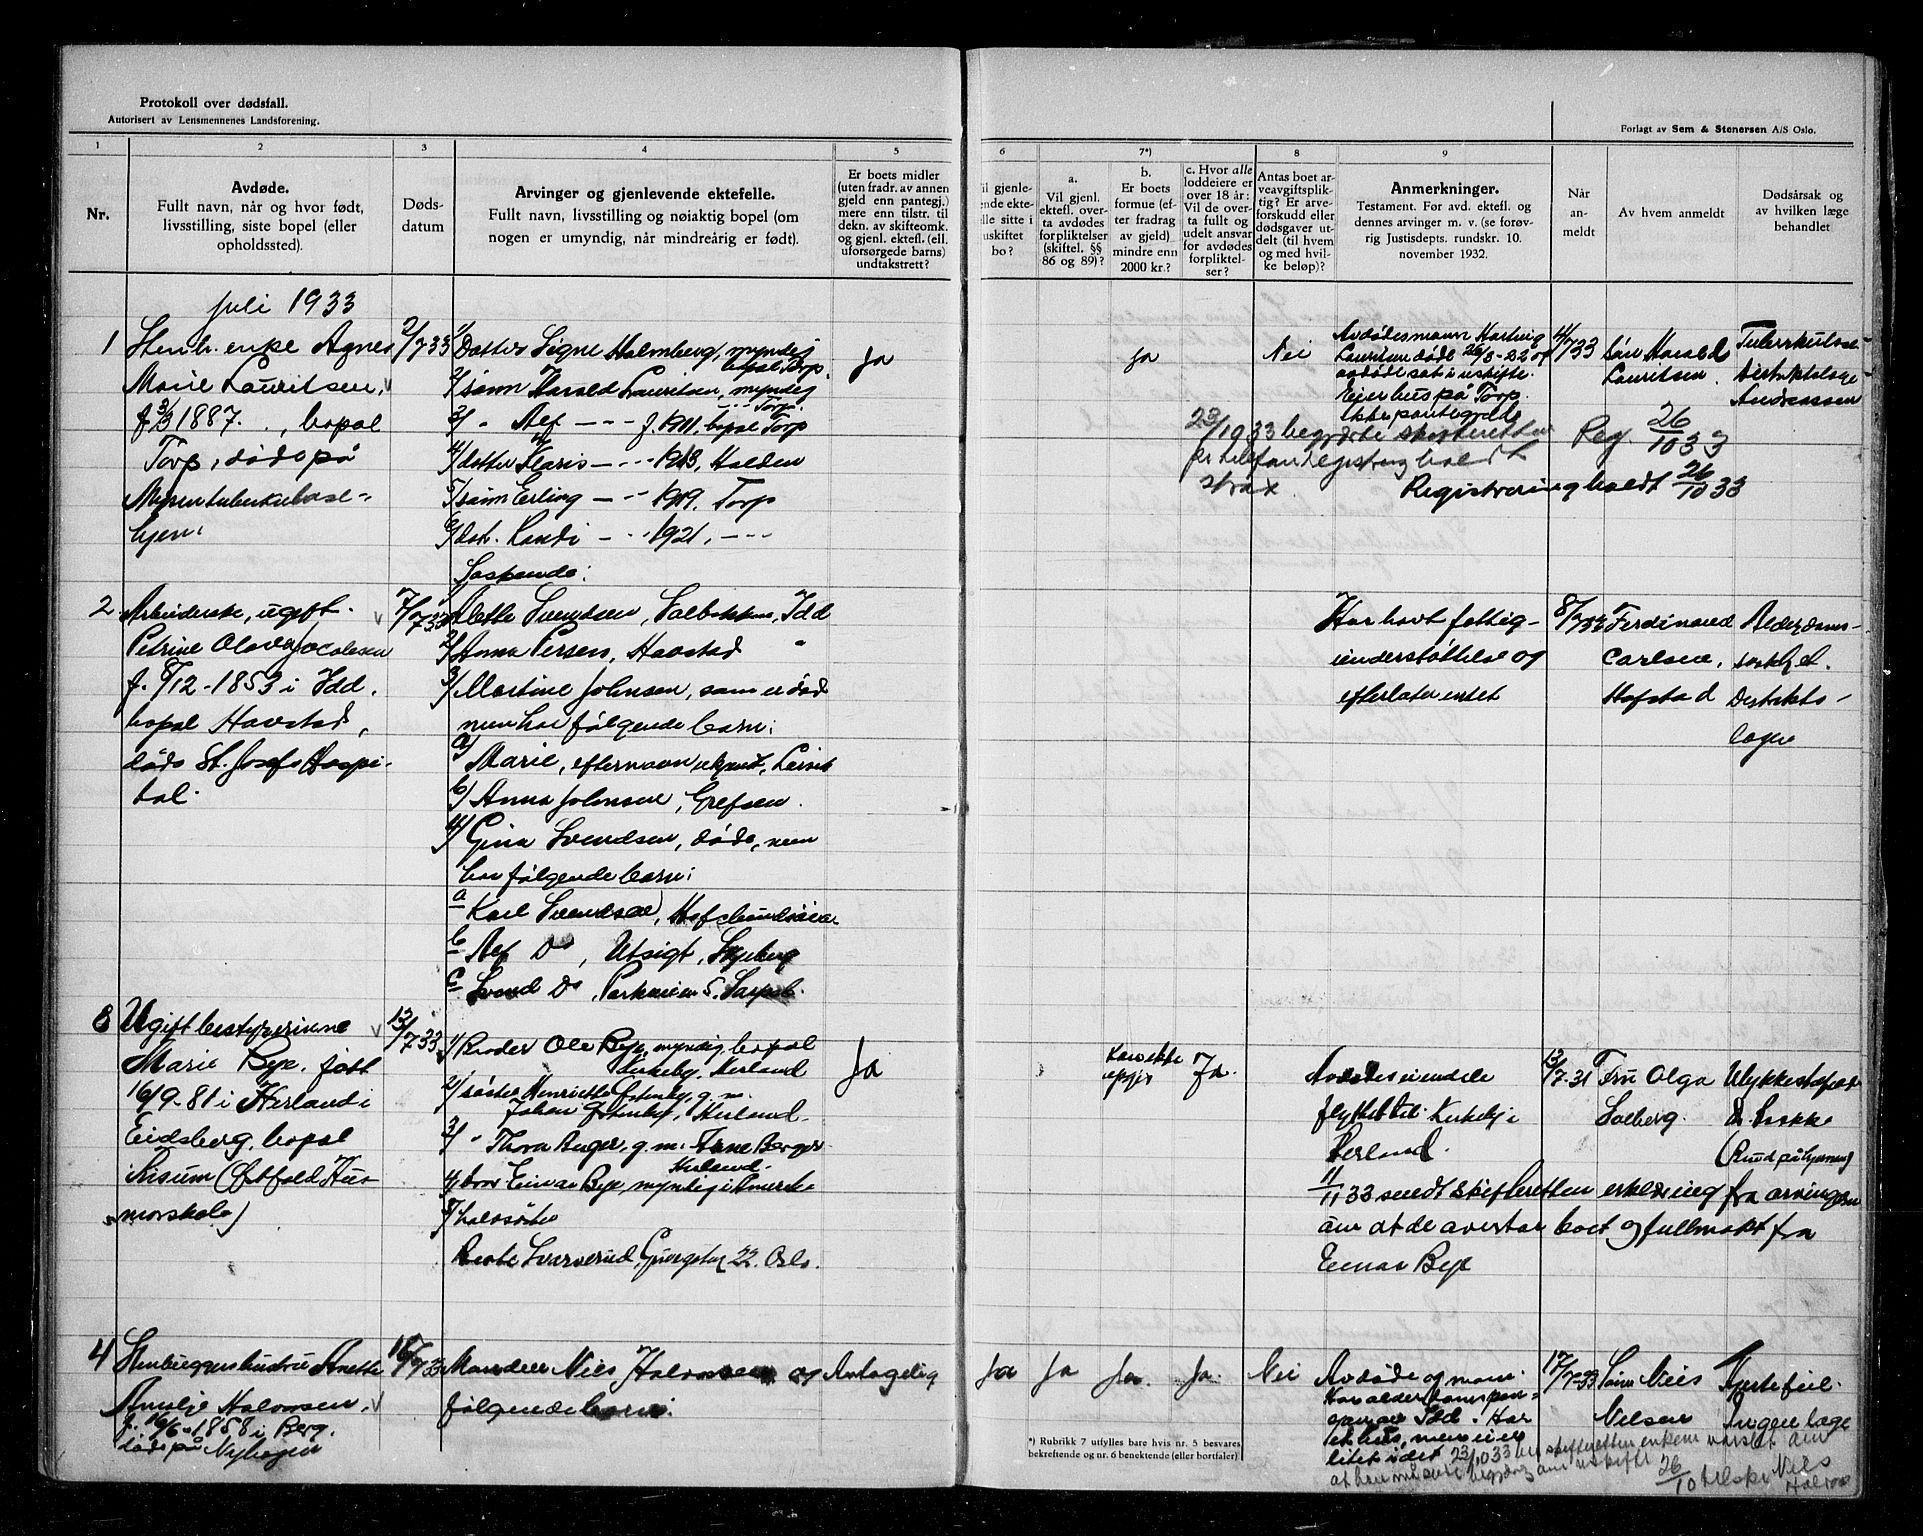 Protokoll over dødsfall.
Autorisert av Lensmennenes Landsforening.
Forlagt av Sem & Stenersen A/S Oslo.
1
2
3
4
5
6
7*)
8
9
Nr.
Avdøde.
Fullt navn, når og hvor født,
livsstilling, siste bopel (eller
opholdssted).
Døds-
datum
Arvinger og gjenlevende ektefelle.
Fullt navn, livsstilling og nøiaktig bopel (om
nogen er umyndig, når mindreårig er født).
Er boets midler
(uten fradr. av annen
gjeld enn pantegj.)
mere enn tilstr. til
dekn. av skifteomk.
og gjenl. ektef. (ell.
uforsørgede barns)
undtakstrett?
il gjenle-
nde ekte-
lle sitte i
uskiftet
bo?
a.
Vil gjenl.
ektefl. over-
ta avdødes
forpliktelser
(skiftel. §§
86 og 89)?
b.
Er boets
formue (ef-
ter fradrag
av gjeld)
mindre enn
2000 kr.?
c. Hvor alle
loddeiere er
over 18 år:
Vil de over-
ta fullt og
udelt ansvar
for avdødes
forpliktel-
ser?
Antas boet ar-
veavgiftsplik-
tig? Er arve-
forskudd eller
dødsgaver ut-
delt (til hvem
og med hvil-
ke beløp)?
Anmerkninger.
Testament. For avd. ektefl. og
dennes arvinger m. v. (se forøv-
rig Justisdepts. rundskr. 10.
november 1932.
Når
an-
meldt
Av hvem anmeldt
Dødsårsak og
av hvilken læge
behandlet
juli 1933
1
Stenh. enke Agnes
Marie Lauritsen,
f 3/3 1887. , bopæl
Torp, døde på
hjem.
2/7 33
1/ Datter Signe Holmberg, myndig
bopæl Torp.
2/ sønn Harald Lauritsen, myndig
Torp.
3/ " Alf — f. 1911, bopæl Torp
4/ datter — 1913, Halden
5/ sønn Erling — 1919. Torp
6/ dat. Randi — 1921.
Ja
Ja
Nei
Avdødes mann Hartvig
Lauritsen døde 26/8-22 og
avdøde sat i uskifte.
Eier hus på Torp.
Ikke pantegjeld
4/7 33
Søn Harald
Lauritsen.
Tuberkulose
Distriktslæge
Andreassen
23/10 33 begjærte skifteretten
pr telefon registrering holdt
strax.
Reg 26/10 33
Registrering holdt 26/10 33
2
Arbeiderske, ugift.
Petrine Olava Jocobsen
f. 8/12-1853 i Idd.
bopæl Havstad,
døde St. Josefs Hospi-
tal.
7/7 33
Søskende:
1/ Alette Svendsen, Solbakken, Idd
2/ Anna Persen, Havstad "
3/ Martine Johnsen, som er død
men har følgende barn:
a/ Marie, efternavn ukjent, Larvik
b/ Anna Johnsen, Grefsen.
4/ Gina Svendsen, døde, men
har følgende barn:
a Karl Svendsen,
b Alf Do, Utsigt, Skjeberg
c Svend Do, Parkveien 5. Sarpsb.
Har havt fattig-
understøttelse og
efterlater intet
8/7 33
Ferdinand
Carlsen,
Hofstad
Alderdoms-
svakhet.
Distrikts-
læge
3
Ugift bestyrerinne
Marie Bye, født
16/9-81 i Herland i
Eidsberg, bopæl
Risum (Østfold Hus-
morskole)
13/7 33
1/ Broder Ole Bye, myndig, bopæl
Kirkeby, Herland
2/ søster Henriette Østenby, g. m.
Johan Østenby, Herland.
3/ " Thora Berger, g. m. Arne Berger
Herland.
4/ bror Einar Bye, myndig i Amerika
5/ halvsøster
Svarverud, 22. Oslo.
Ja
Kan ikke
opgis
Ja.
Avdødes eiendele
flyttet til Kirkeby i
Herland.
11/11 33 sendt skifteretten erklæring fra arvingene
om at de overtar boet og fullmakt fra
Einar Bye
13/7-31
Fru Olga
Solberg.
Ulykkestilfelde
Dr. Bakke
4
Stenhuggerhustru Anette
Amalje Halvorsen,
f. 16/6-1858 i Berg.
døde på Nyhagen
16/7 33
Manden Niels Halvorsen og
følgende barn:
Antagelig
Ja
Ja
Ja.
Ja.
Nei
Avdøde og mann
har alderdomspen-
gar av Idd. Har
et hus, men eier
litet i det
17/7-33
Sønn Niels
Nielsen
Hjertefeil.
Ingen læge
*) Rubrikk 7 utfylles bare hvis nr. 5 besvares
bekreftende og nr. 6 benektende (eller bortfaller).
23/10 33 skifteretten enkem varslet om
26/10 tilskr Niels
Halvor